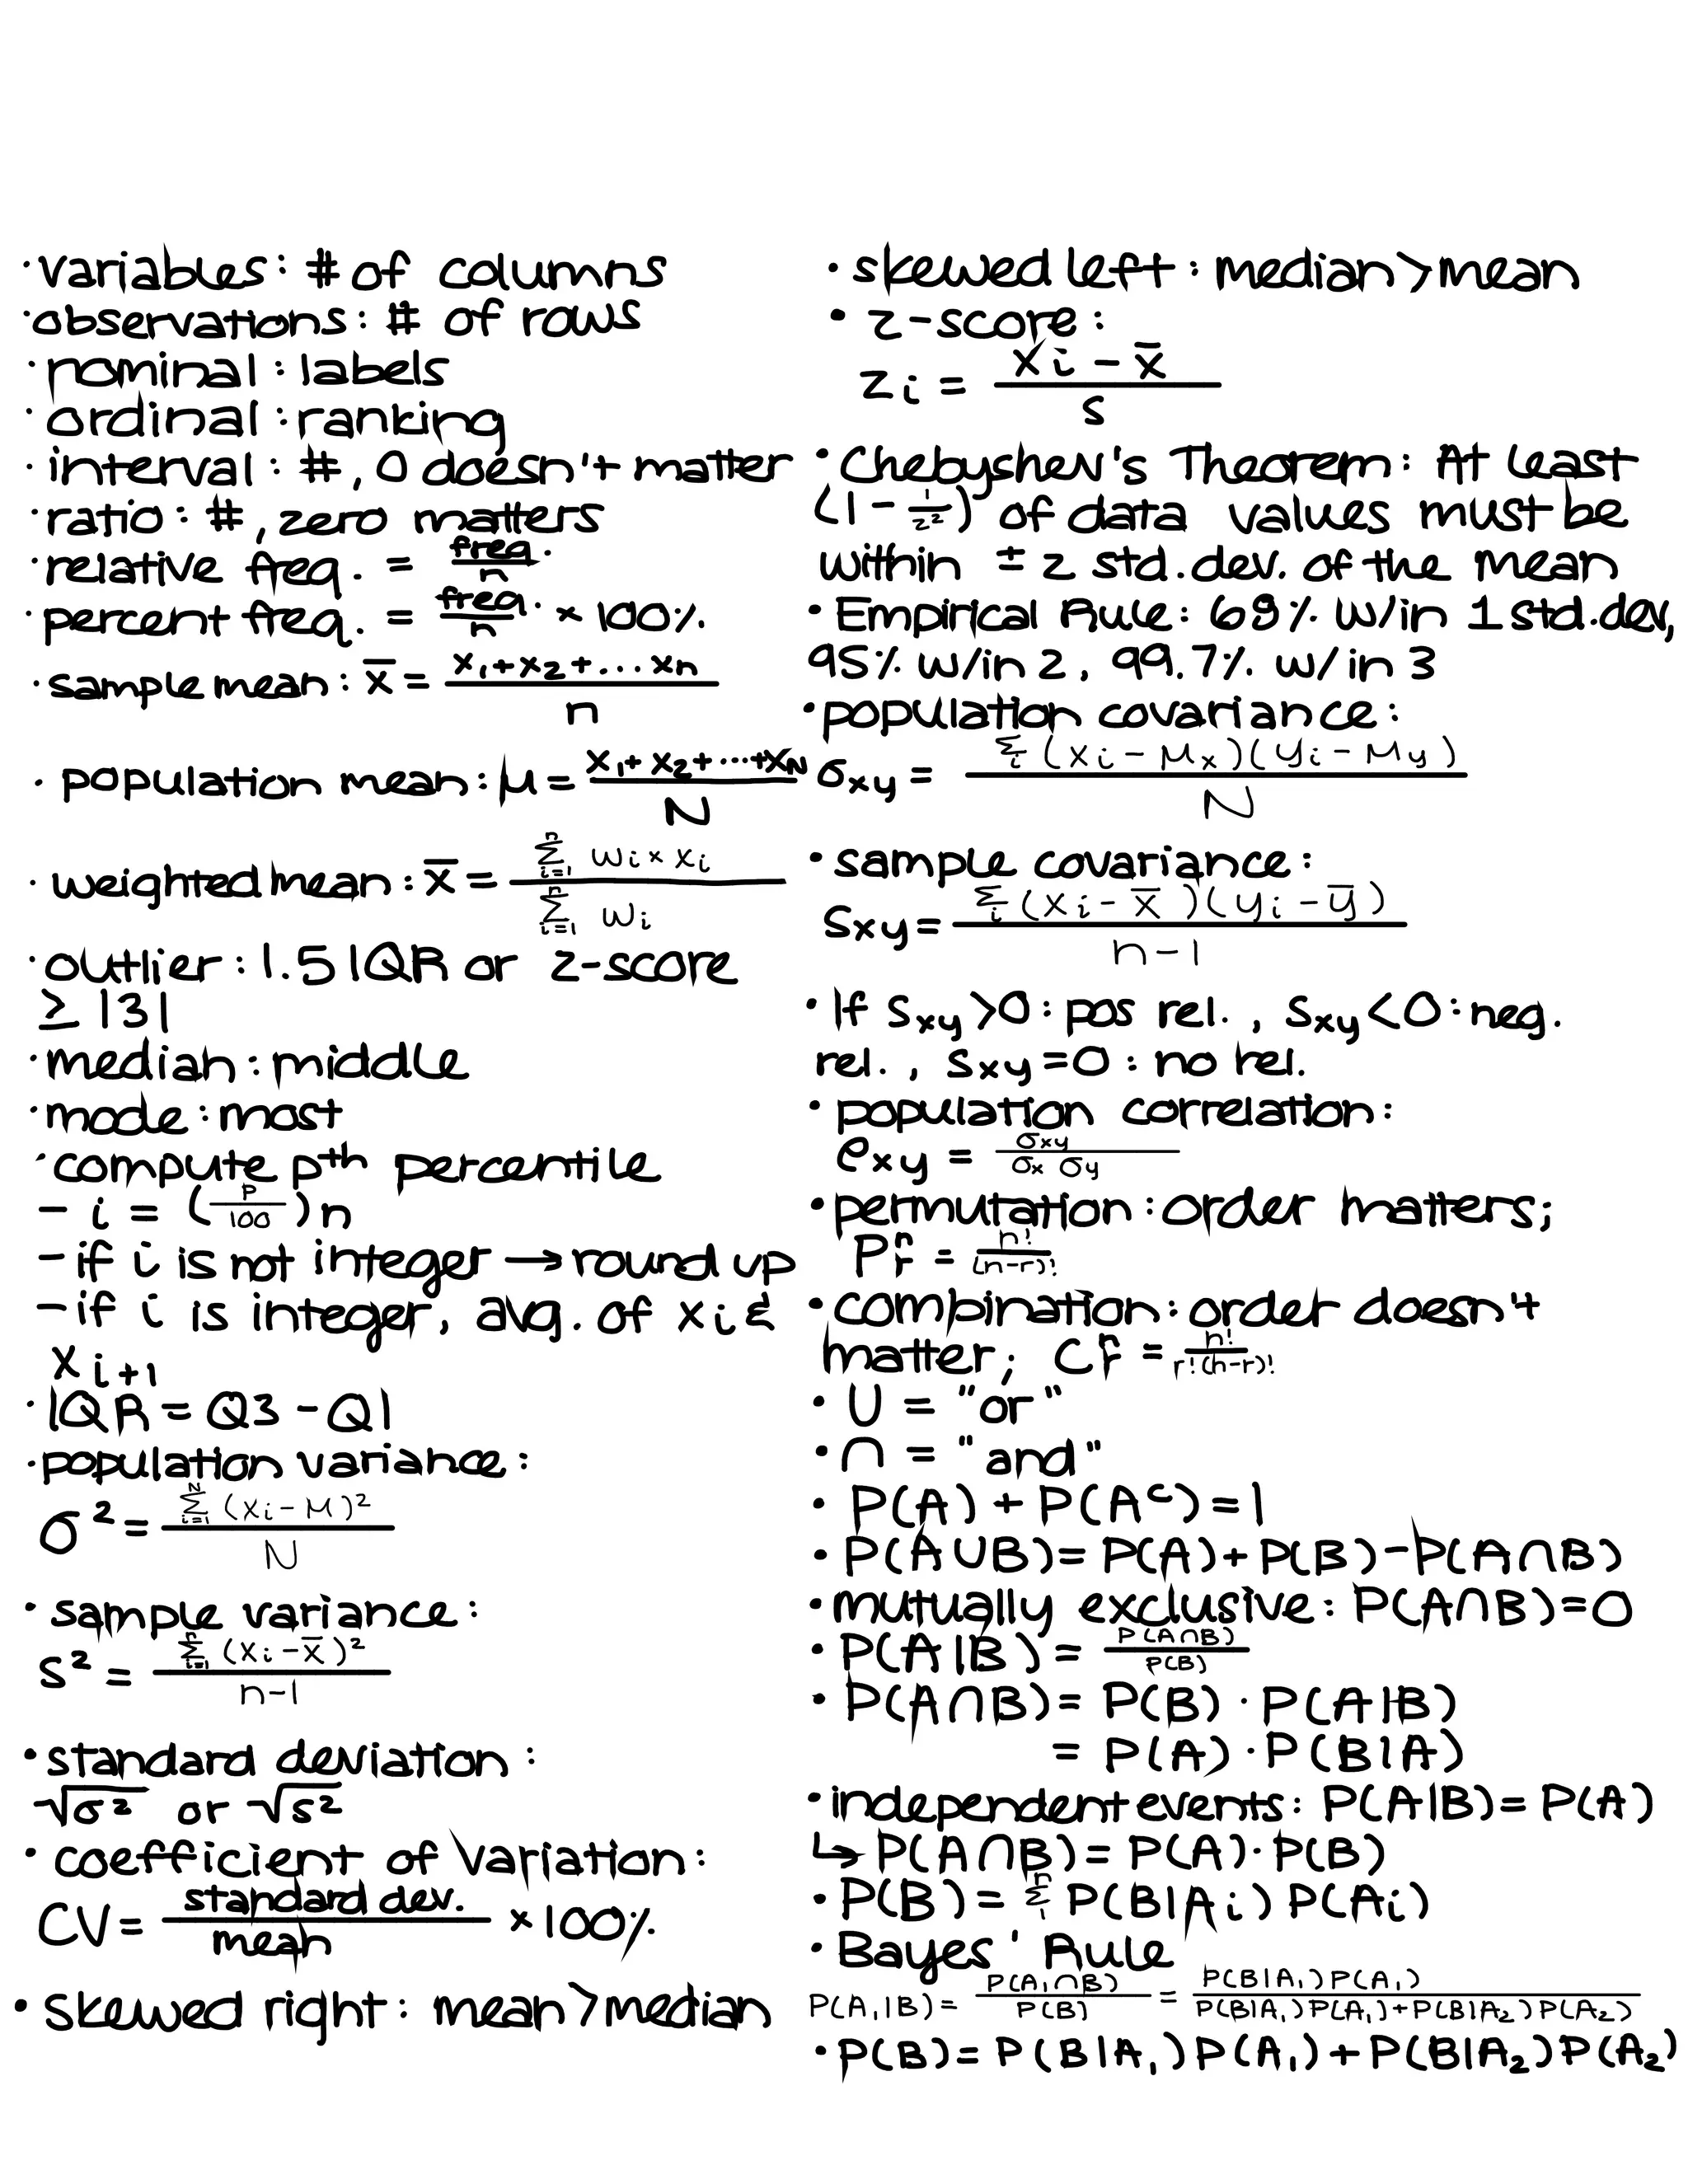 ·variables: # of columns
·observations: # of rows
·nominal: labels
·ordinal: ranking
·interval: #, 0 doesn't matter
·ratio: #, zero matters
·relative freq. = freq./n
·percent freq. = freq./n × 100%
·sample mean: x̄ = (x₁+x₂+...xn)/n
·population mean: μ = (x₁+x₂+...+xN)/N
·weighted mean: x̄ = (Σⁿᵢ₌₁ wi × xi)/(Σⁿᵢ₌₁ wi)
·outlier: 1.5 IQR or z-score
≥ |3|
·median: middle
·mode: most
·compute pth percentile
- i = (P/100)n
- if i is not integer → round up
- if i is integer, avg. of xi &
xi+1
·IQR = Q3 - Q1
·population variance:
σ² = (Σᴺᵢ₌₁ (xi - μ)²)/N
·sample variance:
s² = (Σⁿᵢ₌₁ (xi - x̄)²)/(n-1)
·standard deviation:
√σ² or √s²
·coefficient of variation:
CV = standard dev./mean × 100%
·skewed right: mean > median
·skewed left: median > mean
·z-score:
zi = (xi - x̄)/s
·Chebyshev's Theorem: At least
(1 - 1/z²) of data values must be
within ± z std. dev. of the mean
·Empirical Rule: 68% w/in 1 std. dev,
95% w/in 2, 99.7% w/in 3
·population covariance:
σxy = (Σi (xi - μx)(yi - μy))/N
·sample covariance:
sxy = (Σi (xi - x̄)(yi - ȳ))/(n-1)
·If sxy > 0: pos rel., sxy < 0: neg.
rel., sxy = 0: no rel.
·population correlation:
ρxy = σxy/(σx σy)
·permutation: order matters;
Pⁿr = n!/(n-r)!
·combination: order doesn't
matter; Cⁿr = n!/(r!(n-r)!)
·∪ = "or"
·∩ = "and"
·P(A) + P(Aᶜ) = 1
·P(A∪B) = P(A) + P(B) - P(A∩B)
·mutually exclusive: P(A∩B) = 0
·P(A|B) = P(A∩B)/P(B)
·P(A∩B) = P(B) · P(A|B)
= P(A) · P(B|A)
·independent events: P(A|B) = P(A)
↳ P(A∩B) = P(A) · P(B)
·P(B) = Σⁿ₁ P(B|Ai) P(Ai)
·Bayes' Rule
P(A₁|B) = P(A₁∩B)/P(B) = P(B|A₁)P(A₁)/(P(B|A₁)P(A₁)+P(B|A₂)P(A₂))
·P(B) = P(B|A₁)P(A₁) + P(B|A₂)P(A₂)